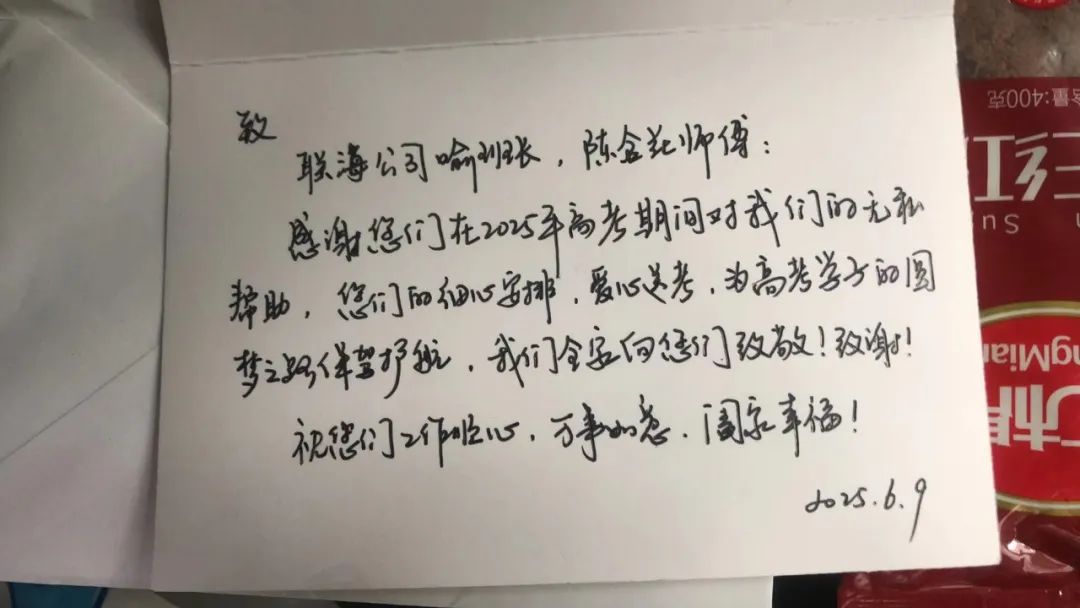 致
联海公司喻班长，陈金花师傅：
感谢您们在2025年高考期间对我们的无私
帮助，您们的细心安排，爱心送考，为高考学子的圆
梦之路保驾护航，我们全家向您们致敬！致谢！
祝您们工作顺心，万事如意，阖家幸福！
2025.6.9
含量:400克
红
Su
ngMian